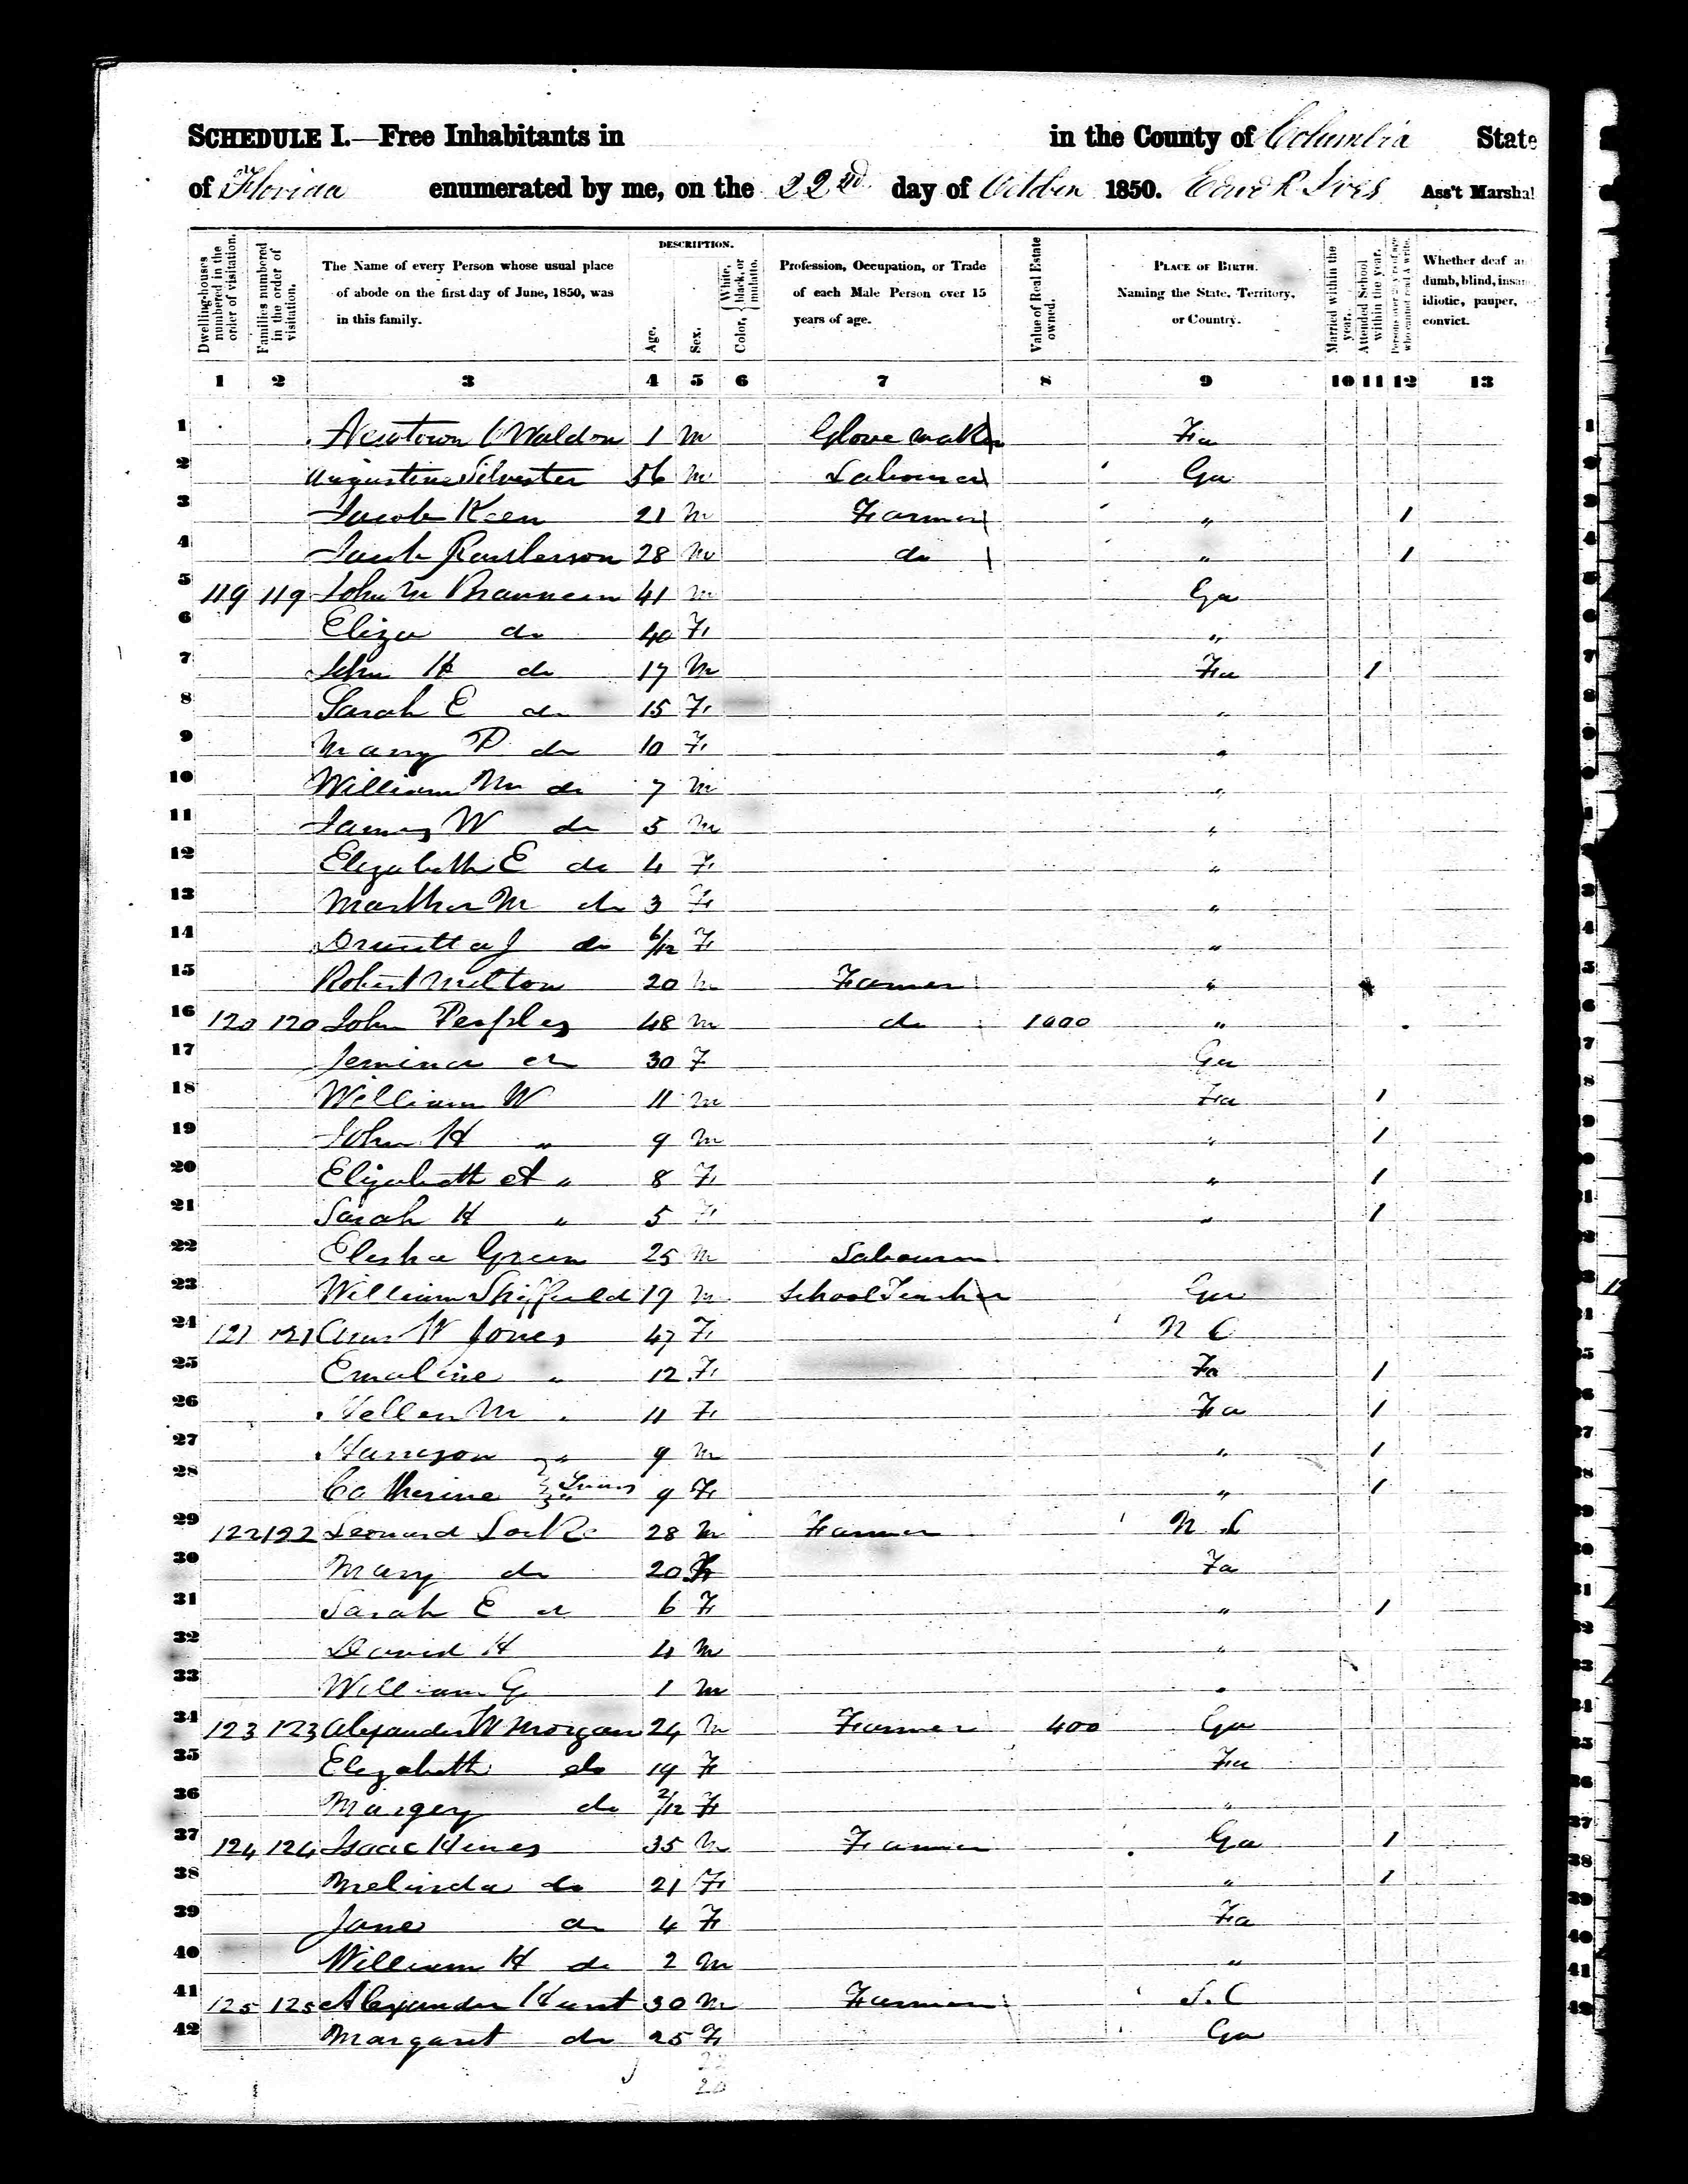 SCHEDULE I.—Free Inhabitants in in the County of Columbia State
of Florida enumerated by me, on the 22nd day of October 1850. Edwd R Ives Ass't Marshal
Dwelling-houses numbered in the order of visitation.
Families numbered in the order of visitation.
The Name of every Person whose usual place of abode on the first day of June, 1850, was in this family.
DESCRIPTION.
Age.
Sex.
Color, White, black, or mulatto.
Profession, Occupation, or Trade of each Male Person over 15 years of age.
Value of Real Estate owned.
PLACE OF BIRTH. Naming the State, Territory, or Country.
Married within the year.
Attended School within the year.
Persons over 20 y'rs of age who cannot read & write.
Whether deaf an dumb, blind, insan idiotic, pauper, convict.
1 2 3 4 5 6 7 8 9 10 11 12 13
1 Newtown Waldon 1 m Glove maker Fa 1
2 Augustine Silvester 56 m Labourer Ga
3 Jacob Keen 21 m Farmer " 1 3
4 Jacob Raulerson 28 m do " 1 4
5 119 119 John M Branneen 41 m Ga 5
6 Eliza do 40 F " 6
7 John H do 17 m Fa 1 7
8 Sarah E do 15 F " 8
9 Mary P do 10 F " 9
10 William M do 7 m "
11 James W do 5 m " 1
12 Elizabeth E do 4 F "
13 Marther M do 3 F " 3
14 J do 6/12 F " 4
15 Robert Milton 20 m Farmer " 5
16 120 120 John Peeples 48 m do 1000 " 6
17 Jemima do 30 F Ga 7
18 William W 11 m Fa 1 8
19 John H " 9 m " 1 9
20 Elizabeth A " 8 F " 1
21 Sarah H " 5 F " 1 1
22 Elisha Green 25 m Labourer
23 William Sheffield 19 m School Teacher Ga 3
24 121 121 Ann W Jones 47 F N C
25 Emaline " 12 F Fa 1
26 Hellen M " 11 F Fa 1
27 Harrison " 9 m " 1
28 Catherine " Twins 9 F " 1
29 122 122 Leonard Locke 28 m Farmer N C
30 Mary do 20 F Fa
31 Sarah E do 6 F " 1
32 David H 4 m "
33 William G 1 m "
34 123 123 Alexander W Morgan 24 m Farmer 400 Ga
35 Elizabeth do 19 F Fa
36 Margery do 2/12 F "
37 124 124 Isaac Hines 35 m Farmer Ga 1
38 Melinda do 21 F " 1
39 Jane do 4 F Fa
40 William H do 2 m " 40
41 125 125 Alexander Hunt 30 m Farmer S. C 41
42 Margaret do 25 F Ga 42
20